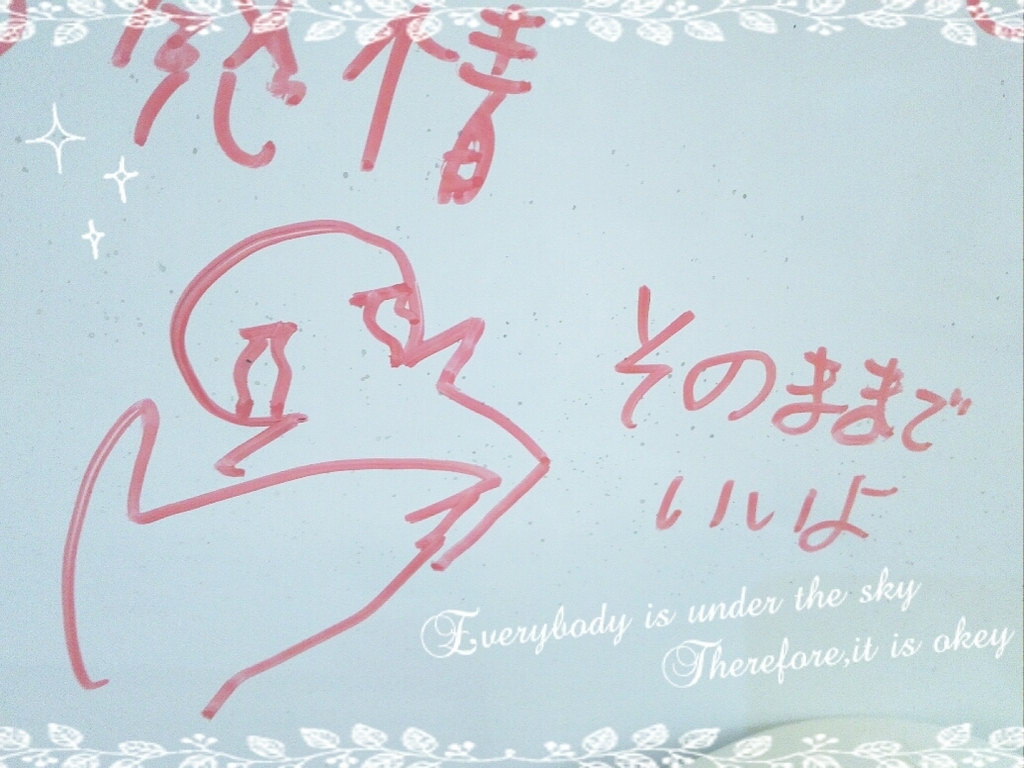 発情
そのままで
いいよ
Everybody is under the sky
Therefore,it is okey